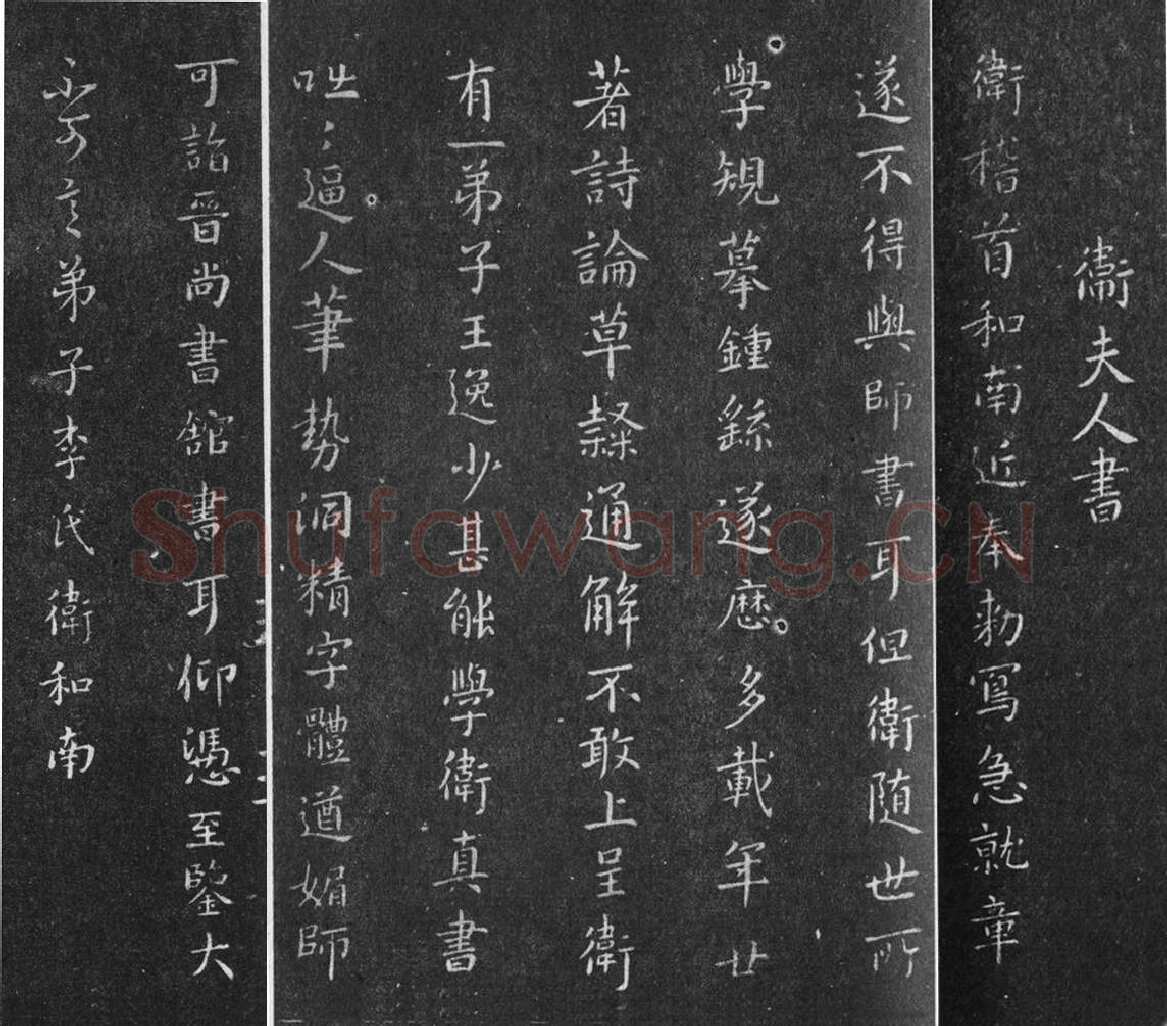 衛夫人書
衛稽首和南近奉勅寫急就章
遂不得與師書耳但衛随世所
學規摹鍾繇遂歷多載年廿
著詩論草隸通解不敢上呈衛
有一弟子王逸少甚能學衛真書
咄〻逼人筆勢洞精字體遒媚師
可詣晉尚書舘書耳仰憑至鑒大
不可言弟子李氏衛和南
Shufawang.CN